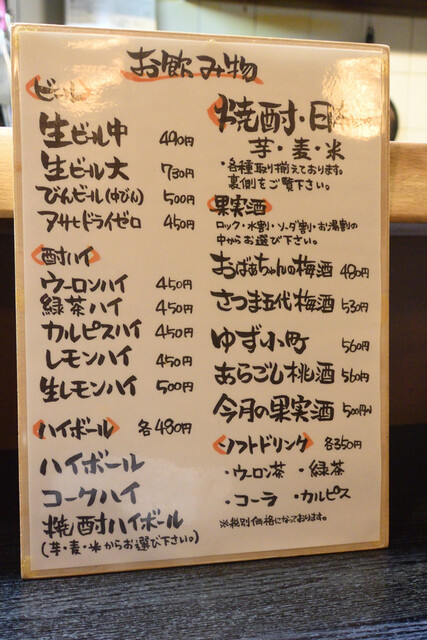 お飲み物
ビール
生ビール中 490円
生ビール大 730円
びんビール(中びん) 500円
アサヒドライゼロ 450円
酎ハイ
ウーロンハイ 450円
緑茶ハイ 450円
カルピスハイ 450円
レモンハイ 450円
生レモンハイ 500円
ハイボール 各480円
ハイボール
コークハイ
焼酎ハイボール
(芋・麦・米からお選び下さい。)
焼酎・日
芋・麦・米
・各種取り揃えております。
裏側をご覧下さい。
果実酒
ロック・水割・ソーダ割・お湯割の
中からお選び下さい。
おばぁちゃんの梅酒 480円
さつま五代梅酒 530円
ゆず小町 560円
あらごし桃酒 560円
今月の果実酒 500円
ソフトドリンク 各350円
・ウーロン茶 ・緑茶
・コーラ ・カルピス
※税別価格になっております。